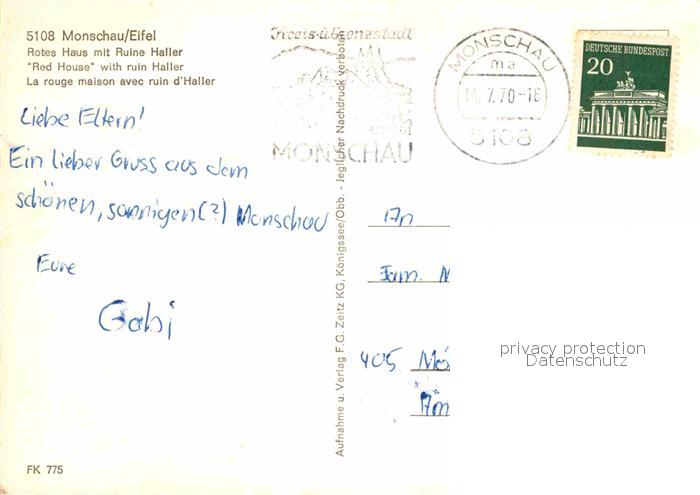 5108 Monschau/Eifel
Rotes Haus mit Ruine Haller
"Red House" with ruin Haller
La rouge maison avec ruin d'Haller
Liebe Eltern!
Ein lieber Gruss aus dem
schönen, sonnigen(?) Monschau
Eure
Gabi
FK 775
Aufnahme u. Verlag F.G. Zeitz KG, Königssee/Obb. - Jeglicher Nachdruck verboten
Kreis-u.Grenzstadt
MONSCHAU
MONSCHAU
ma
14.7.70-16
5108
DEUTSCHE BUNDESPOST
20
An
Fam. M
405 Mö
Am
privacy protection
Datenschutz